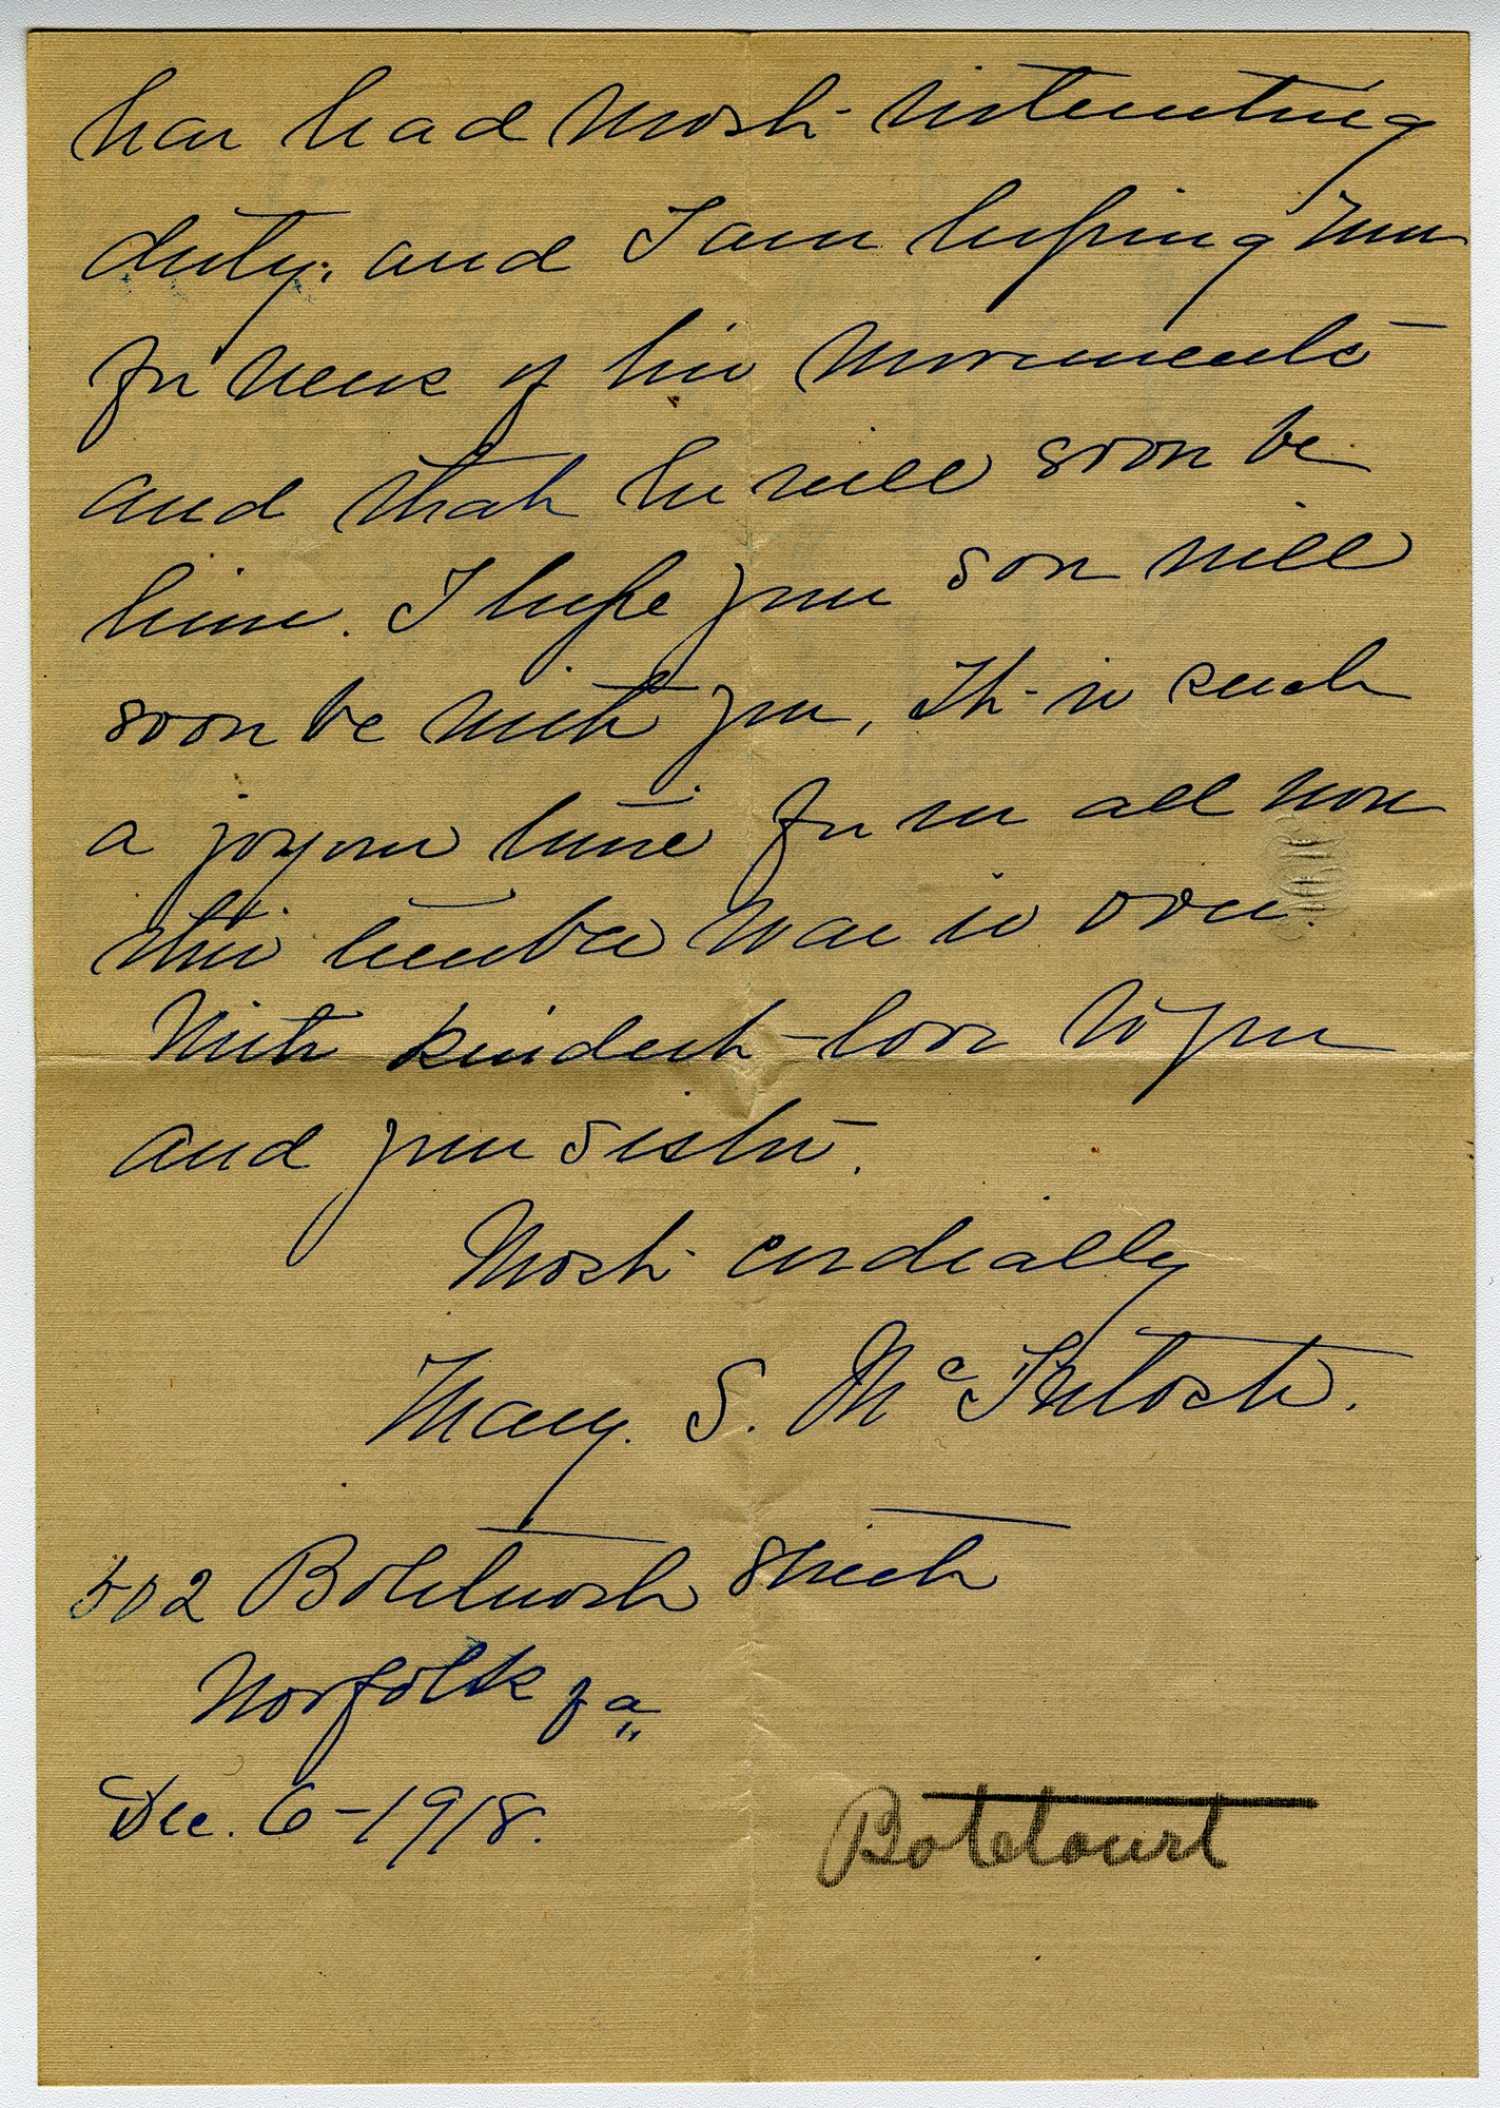 has had most interesting
duty, and I am hoping now
for news of his movements
and that he will soon be
home. I hope your son will
soon be with you, It is such
a joyous time for us all now
this terrible war is over.
With kindest love to you
and your sister.
Most cordially
Mary. S. McIntosh.
502 Botetourt Street
Norfolk Va
Dec. 6-1918.
Botetourt